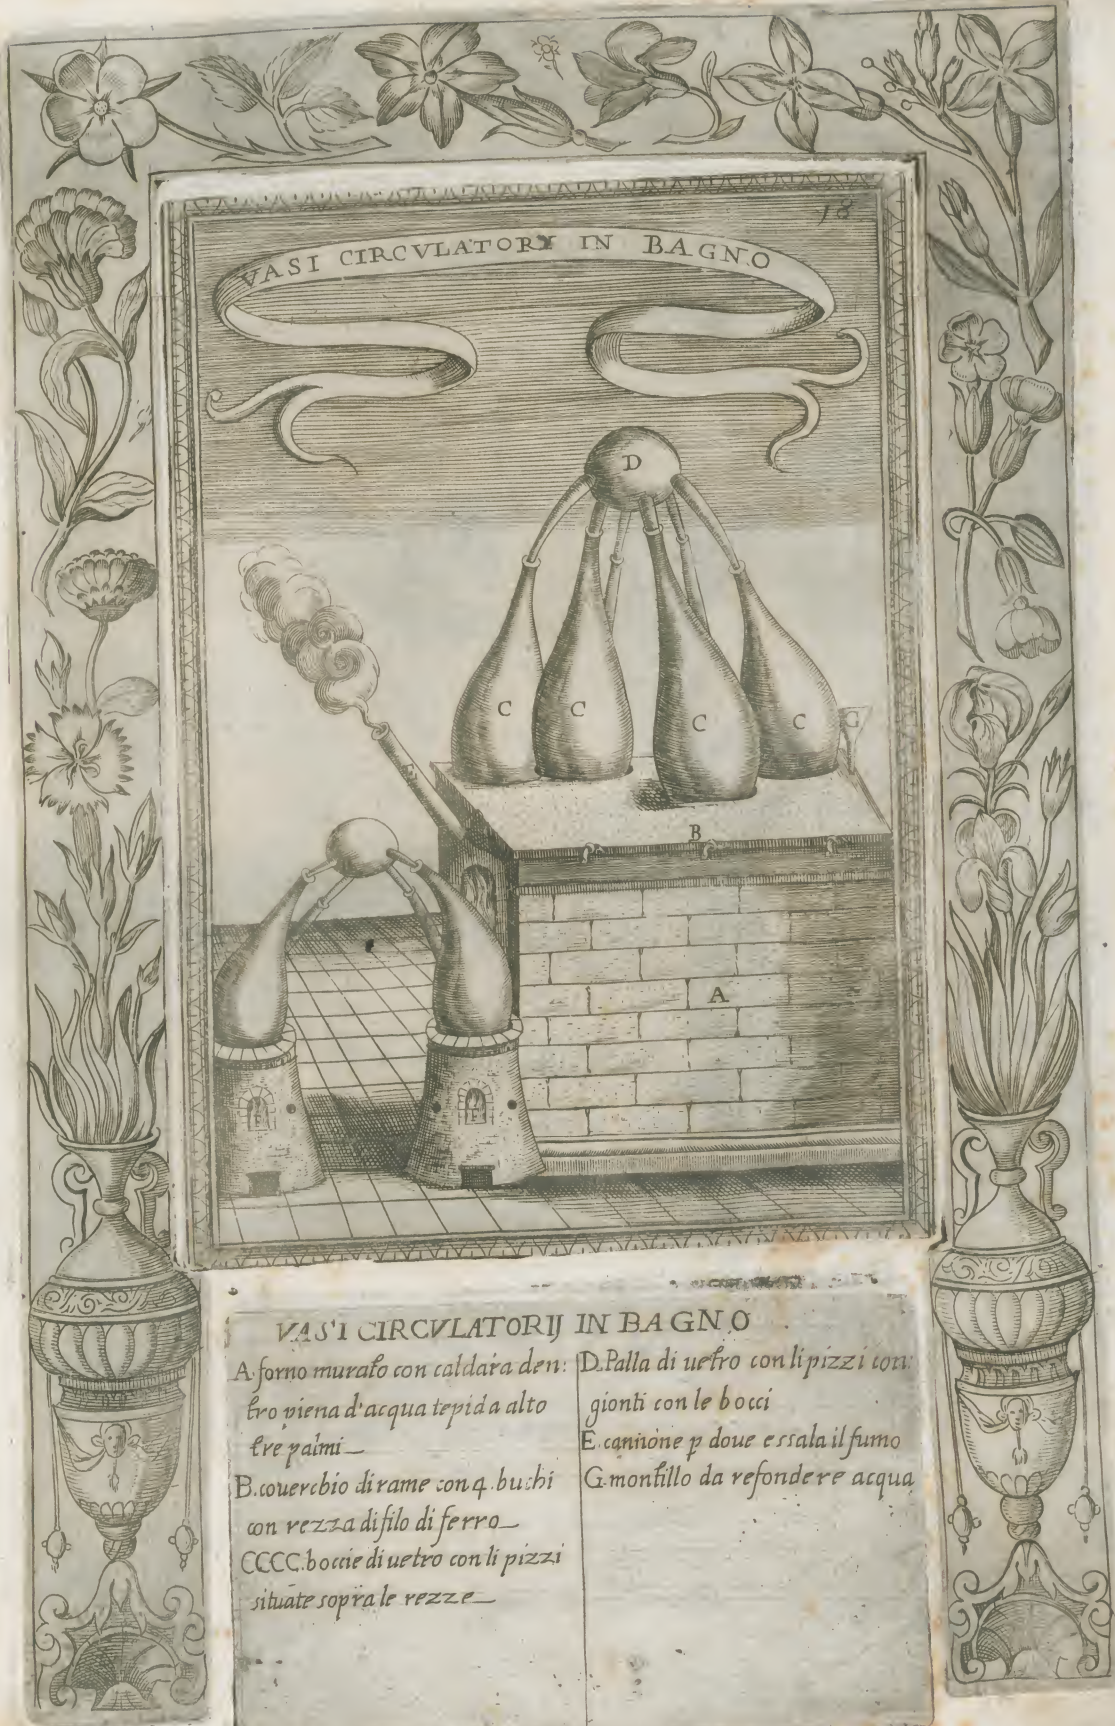 18
VASI CIRCVLATORY IN BAGNO
D
C C C C G
B
E
A
F F
VASI CIRCVLATORIJ IN BAGNO
A. forno murato con caldara den:
tro piena d'acqua tepida alto
tre palmi
B. couerchio di rame con 4. buchi
con rezza di filo di ferro
CCCC. boccie di uetro con li pizzi
situate sopra le rezze
D. Palla di uetro con li pizzi con:
gionti con le bocci
E. cannone p doue essala il fumo
G. montillo da refondere acqua